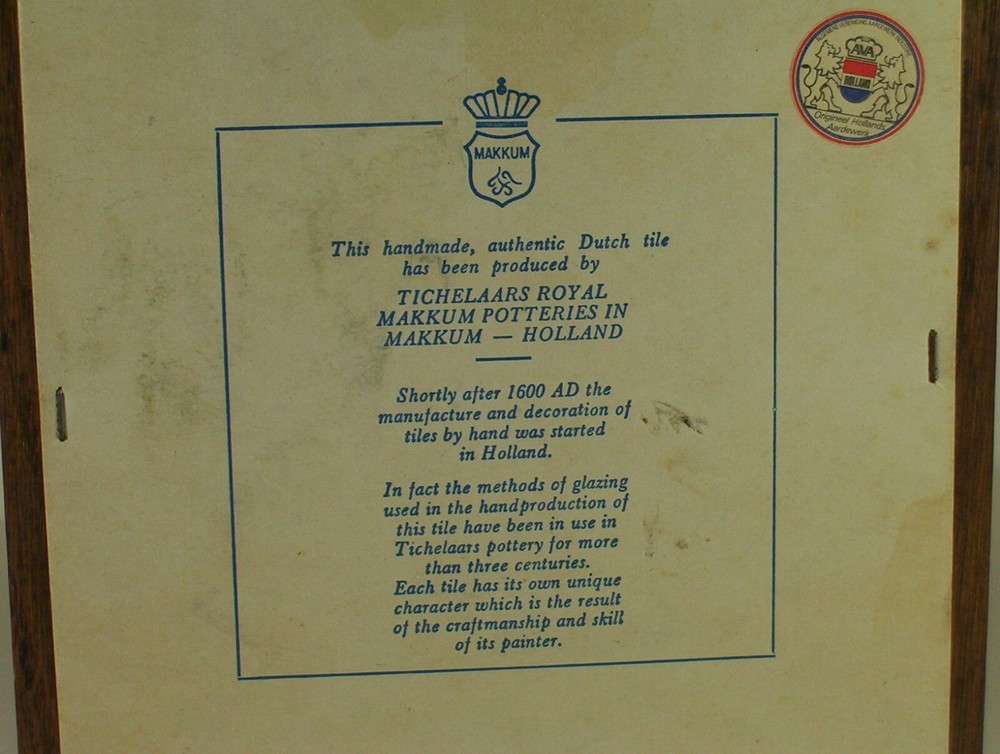 ALGEMENE VERENIGING AARDEWERK
AVA
HOLLAND
Origineel Hollands
Aardewerk
MAKKUM
This handmade, authentic Dutch tile
has been produced by
TICHELAARS ROYAL
MAKKUM POTTERIES IN
MAKKUM — HOLLAND
Shortly after 1600 AD the
manufacture and decoration of
tiles by hand was started
in Holland.
In fact the methods of glazing
used in the handproduction of
this tile have been in use in
Tichelaars pottery for more
than three centuries.
Each tile has its own unique
character which is the result
of the craftmanship and skill
of its painter.